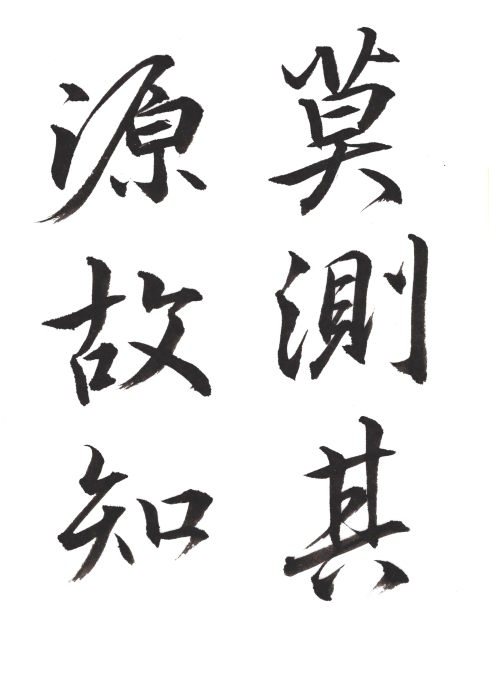 莫測其
源故知